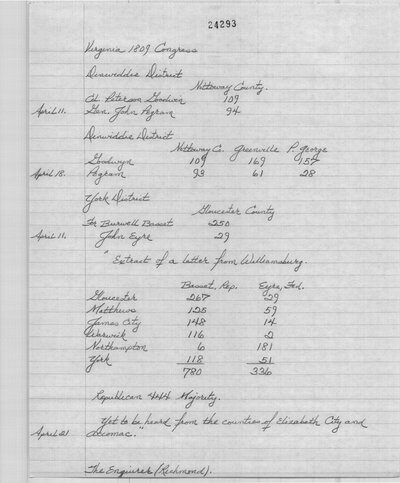 24293
Virginia 1809 Congress
Dinwiddie District
Nottoway County.
Col. Peterson Goodwin 109
April 11. Gen. John Pegram 94
Dinwiddie District
Nottoway C. Greenville P. George
Goodwyn 109 169 157
April 18. Pegram 93 61 28
York District
Gloucester County
For Burwell Basset 250
April 11. John Eyre 29
"Extract of a letter from Williamsburg.
Basset, Rep. Eyre, Fed.
Gloucester 267 29
Matthews 125 59
James City 148 14
Warwick 116 2
Northampton 6 181
York 118 51
780 336
Republican 444 Majority.
Yet to be heard from the counties of Elizabeth City and
April 21 Accomac."
The Enquirer (Richmond).